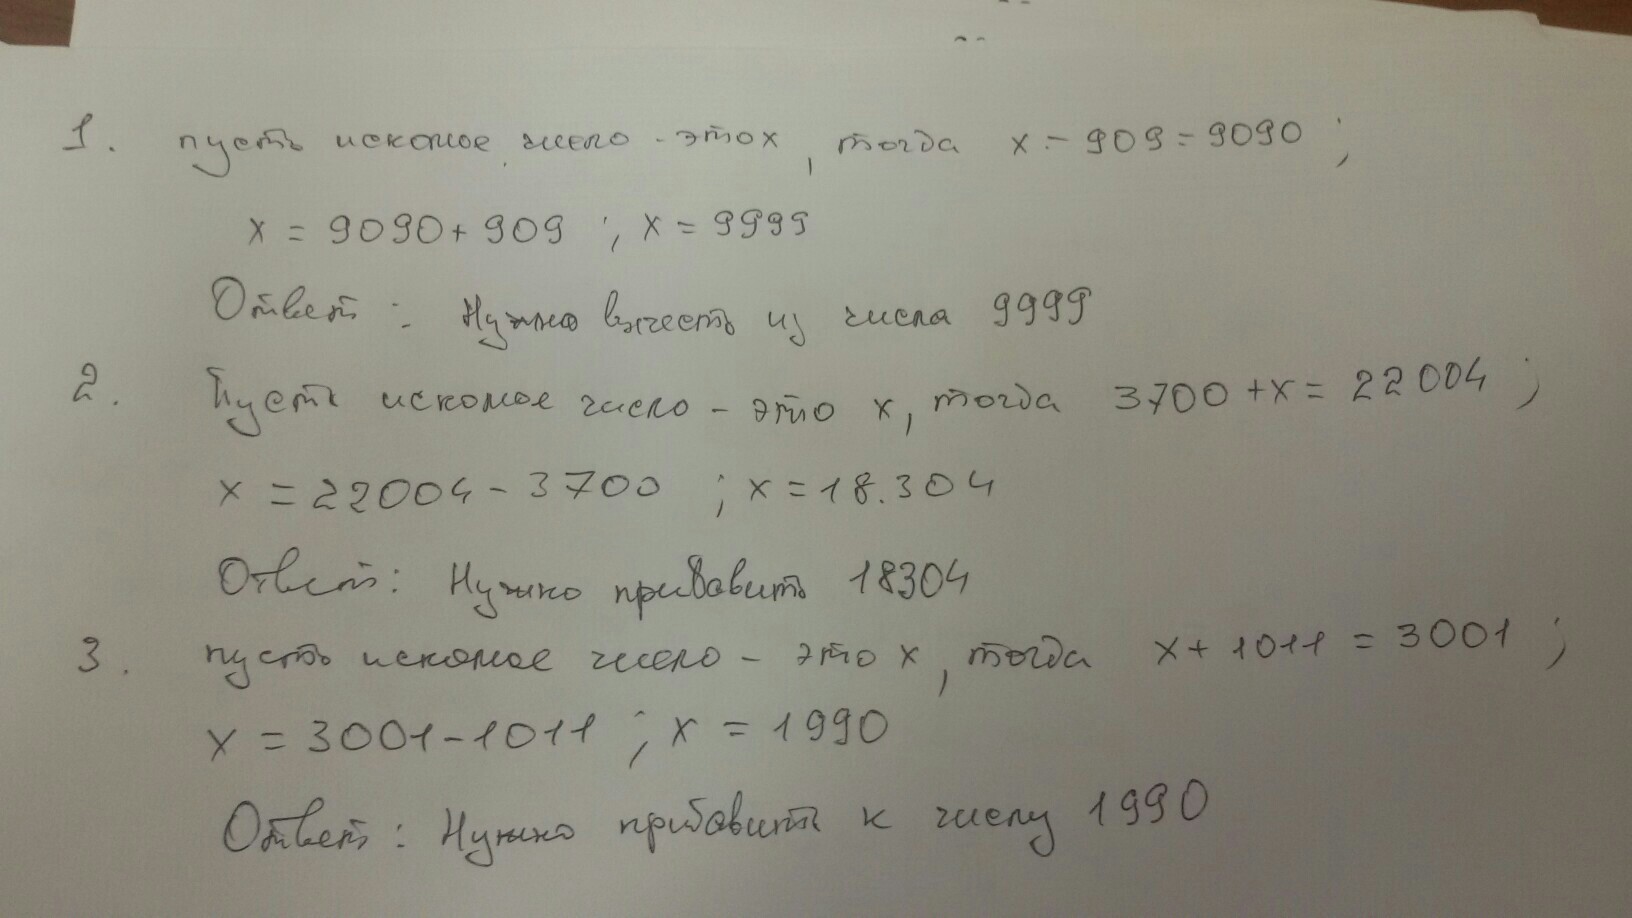 1. пусть искомое число - это х, тогда х - 909 = 9090 ;
х = 9090 + 909 ; х = 9999
Ответ : Нужно вычесть из числа 9999
2. Пусть искомое число - это х, тогда 3700 + х = 22004 ;
х = 22004 - 3700 ; х = 18.304
Ответ : Нужно прибавить 18304
3. пусть искомое число - это х, тогда х + 1011 = 3001 ;
х = 3001 - 1011 ; х = 1990
Ответ : Нужно прибавить к числу 1990